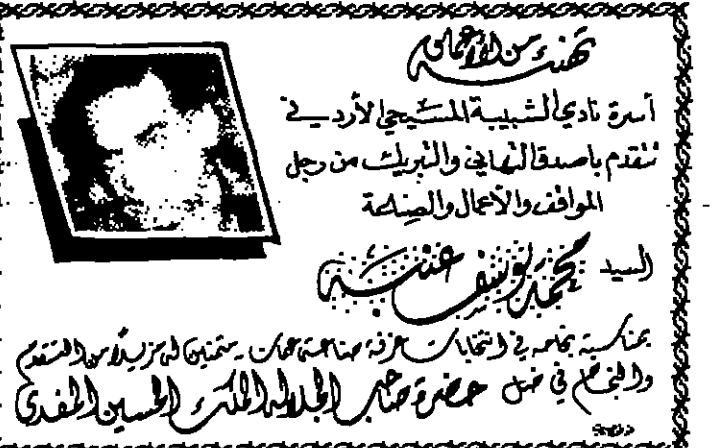 تهنئة من الأعماق
أسرة نادي الشبيبة المسيحي الأردني
تتقدم بأصدق التهاني والتبريك من رجل
المواقف والأعمال والصناعة
السيد محمد يوسف
بمناسبة نجاحه في انتخابات غرفة صناعة عمان . متمنين له مزيدًا من التقدم
والنجاح في ظل حضرة صاحب الجلالة الملك الحسين المفدى